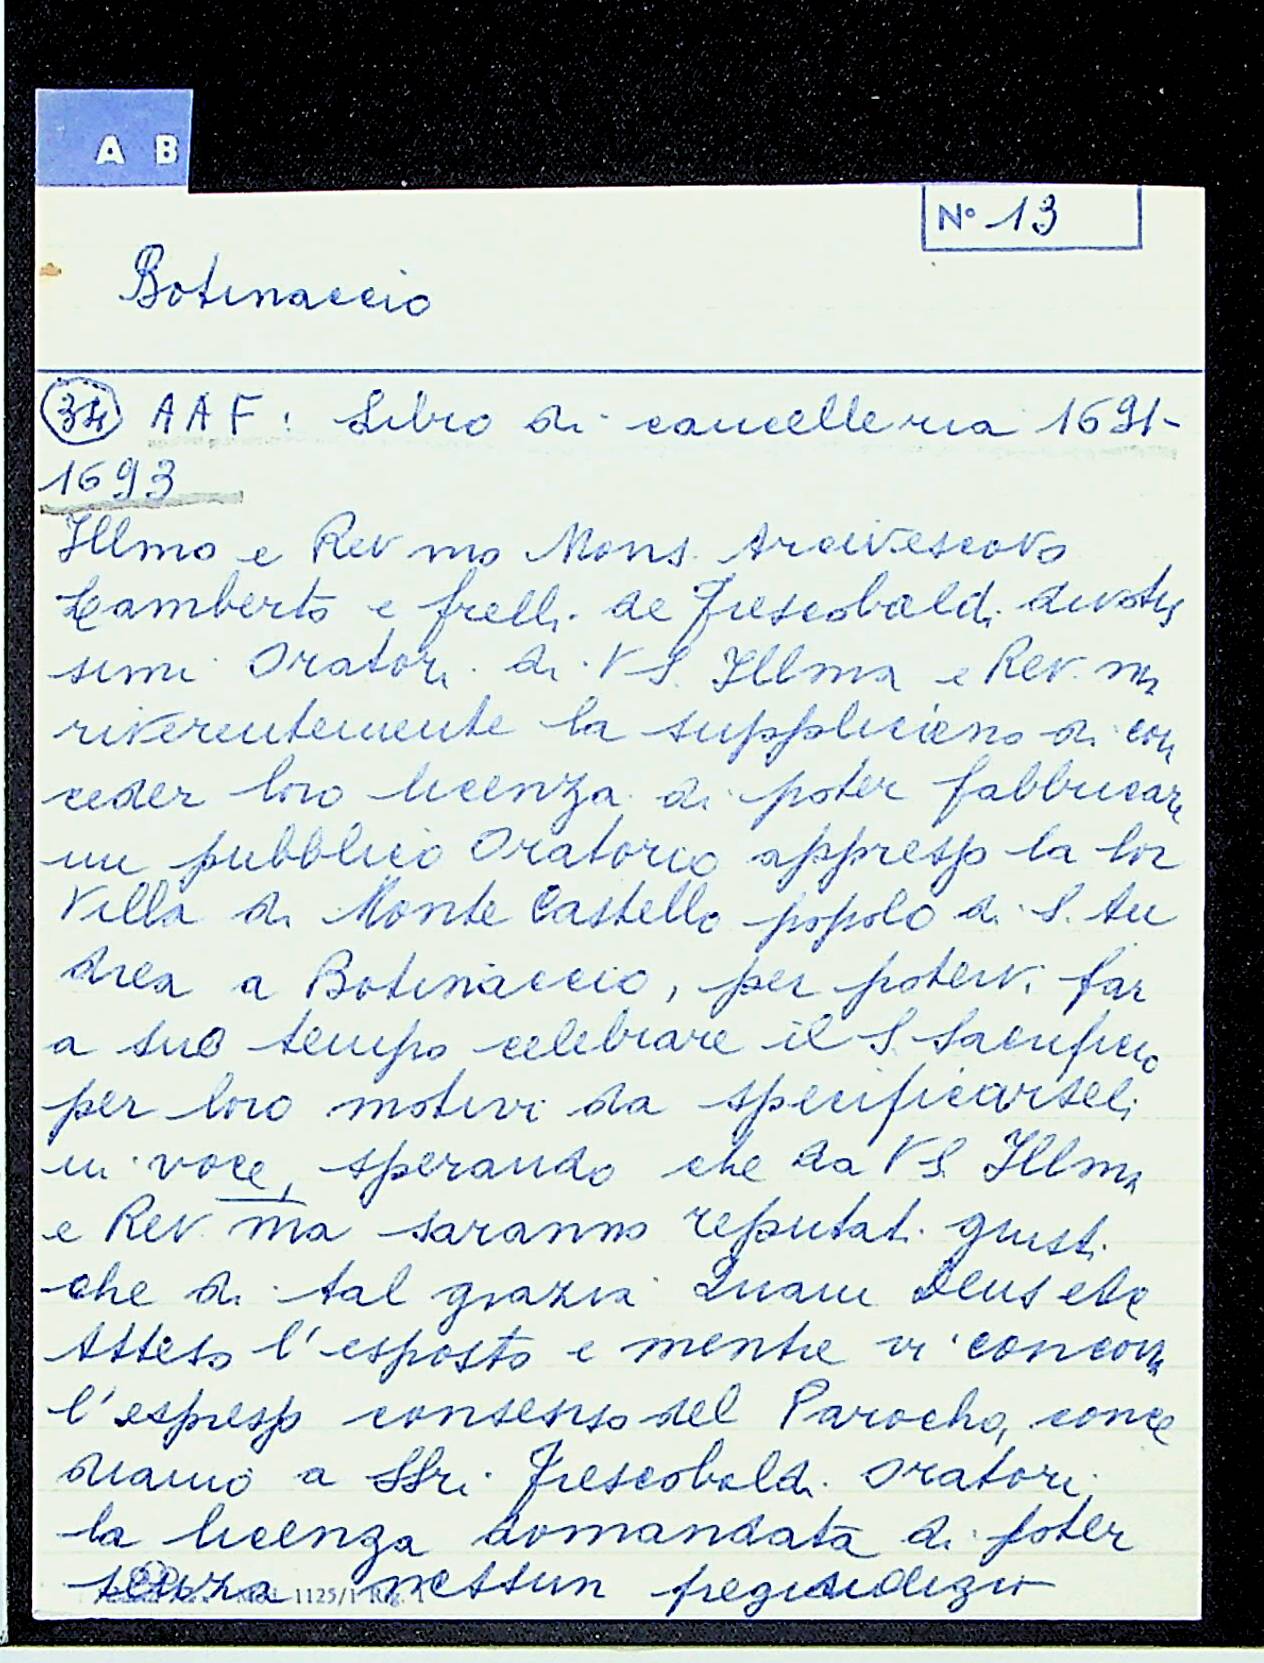 A B
N° 13
Botinaccio
34 AAF: Libro di cancelleria 1691-
1693
Illmo e Rev mo Mons. Arcivescovo
Lamberto e frelli de Frescobaldi divotis
simi Oratori di VS. Illma e Rev. ma
riverentemente la supplicano di con
ceder loro licenza di poter fabbricare
un pubblico Oratorio appresso la lor
Villa di Monte Castello popolo di S. An
drea a Botinaccio, per potervi far
a suo tempo celebrare il S. Sacrificio
per loro motivi da specificarseli
in voce, sperando che da VS. Illma
e Rev. ma saranno reputati giusti
che di tal grazia Quam Deus etc
Atteso l'esposto e mentre vi concorra
l'espresso consenso del Parocho, conce
diamo a SSri Frescobaldi Oratori
la licenza domandata di poter
senza nessun pregiudizio
1125/1